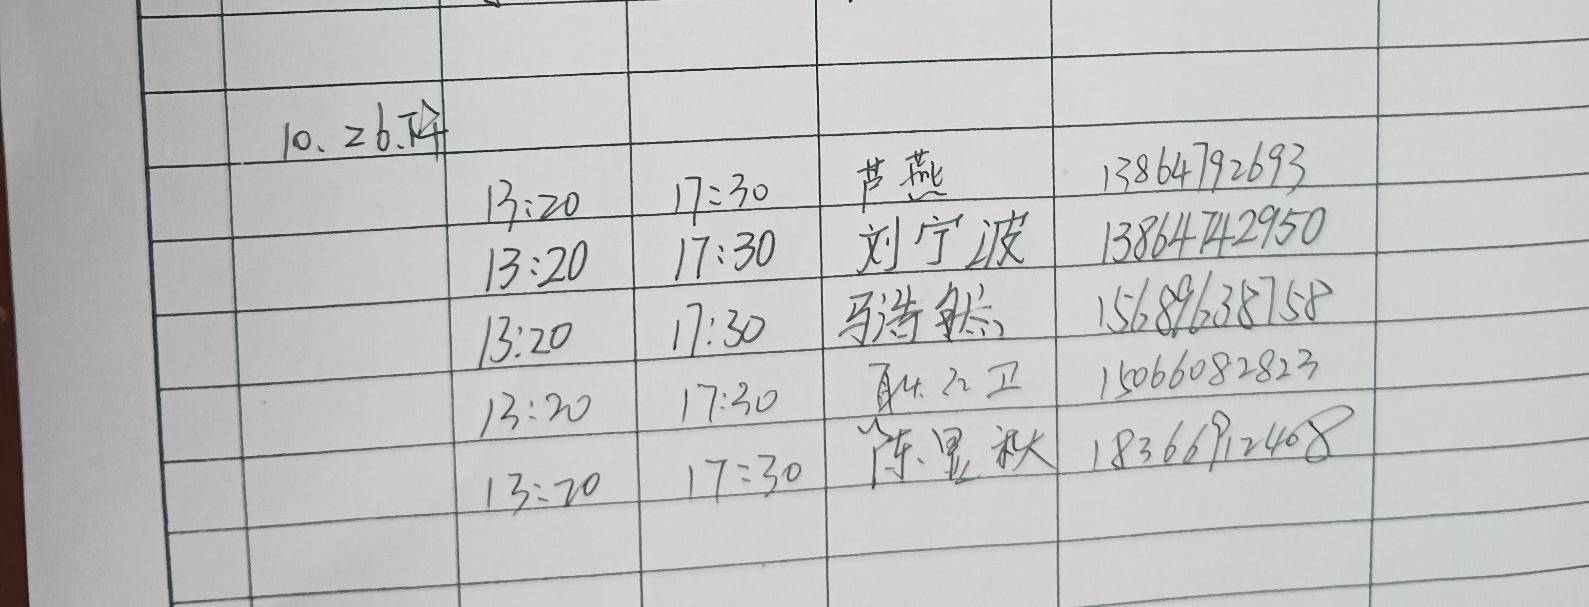 10.26.下午
13:20 17:30 芦燕 13864792693
13:20 17:30 刘宁波 13864742950
13:20 17:30 马浩然 15689638758
13:20 17:30 卫 15066082823
13:20 17:30 陈 秋 18366912468